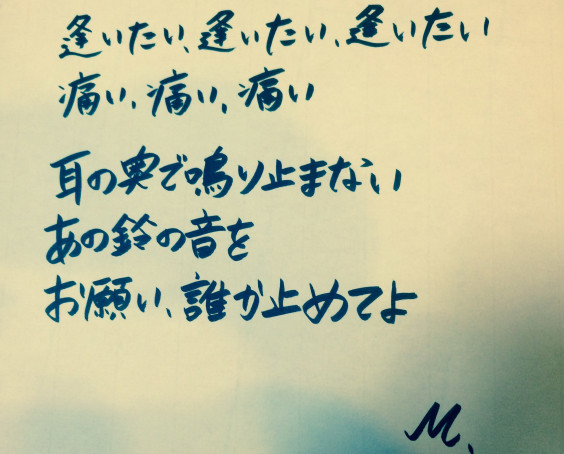 逢いたい、逢いたい、逢いたい
痛い、痛い、痛い
耳の奥で鳴り止まない
あの鈴の音を
お願い、誰か止めてよ
M.